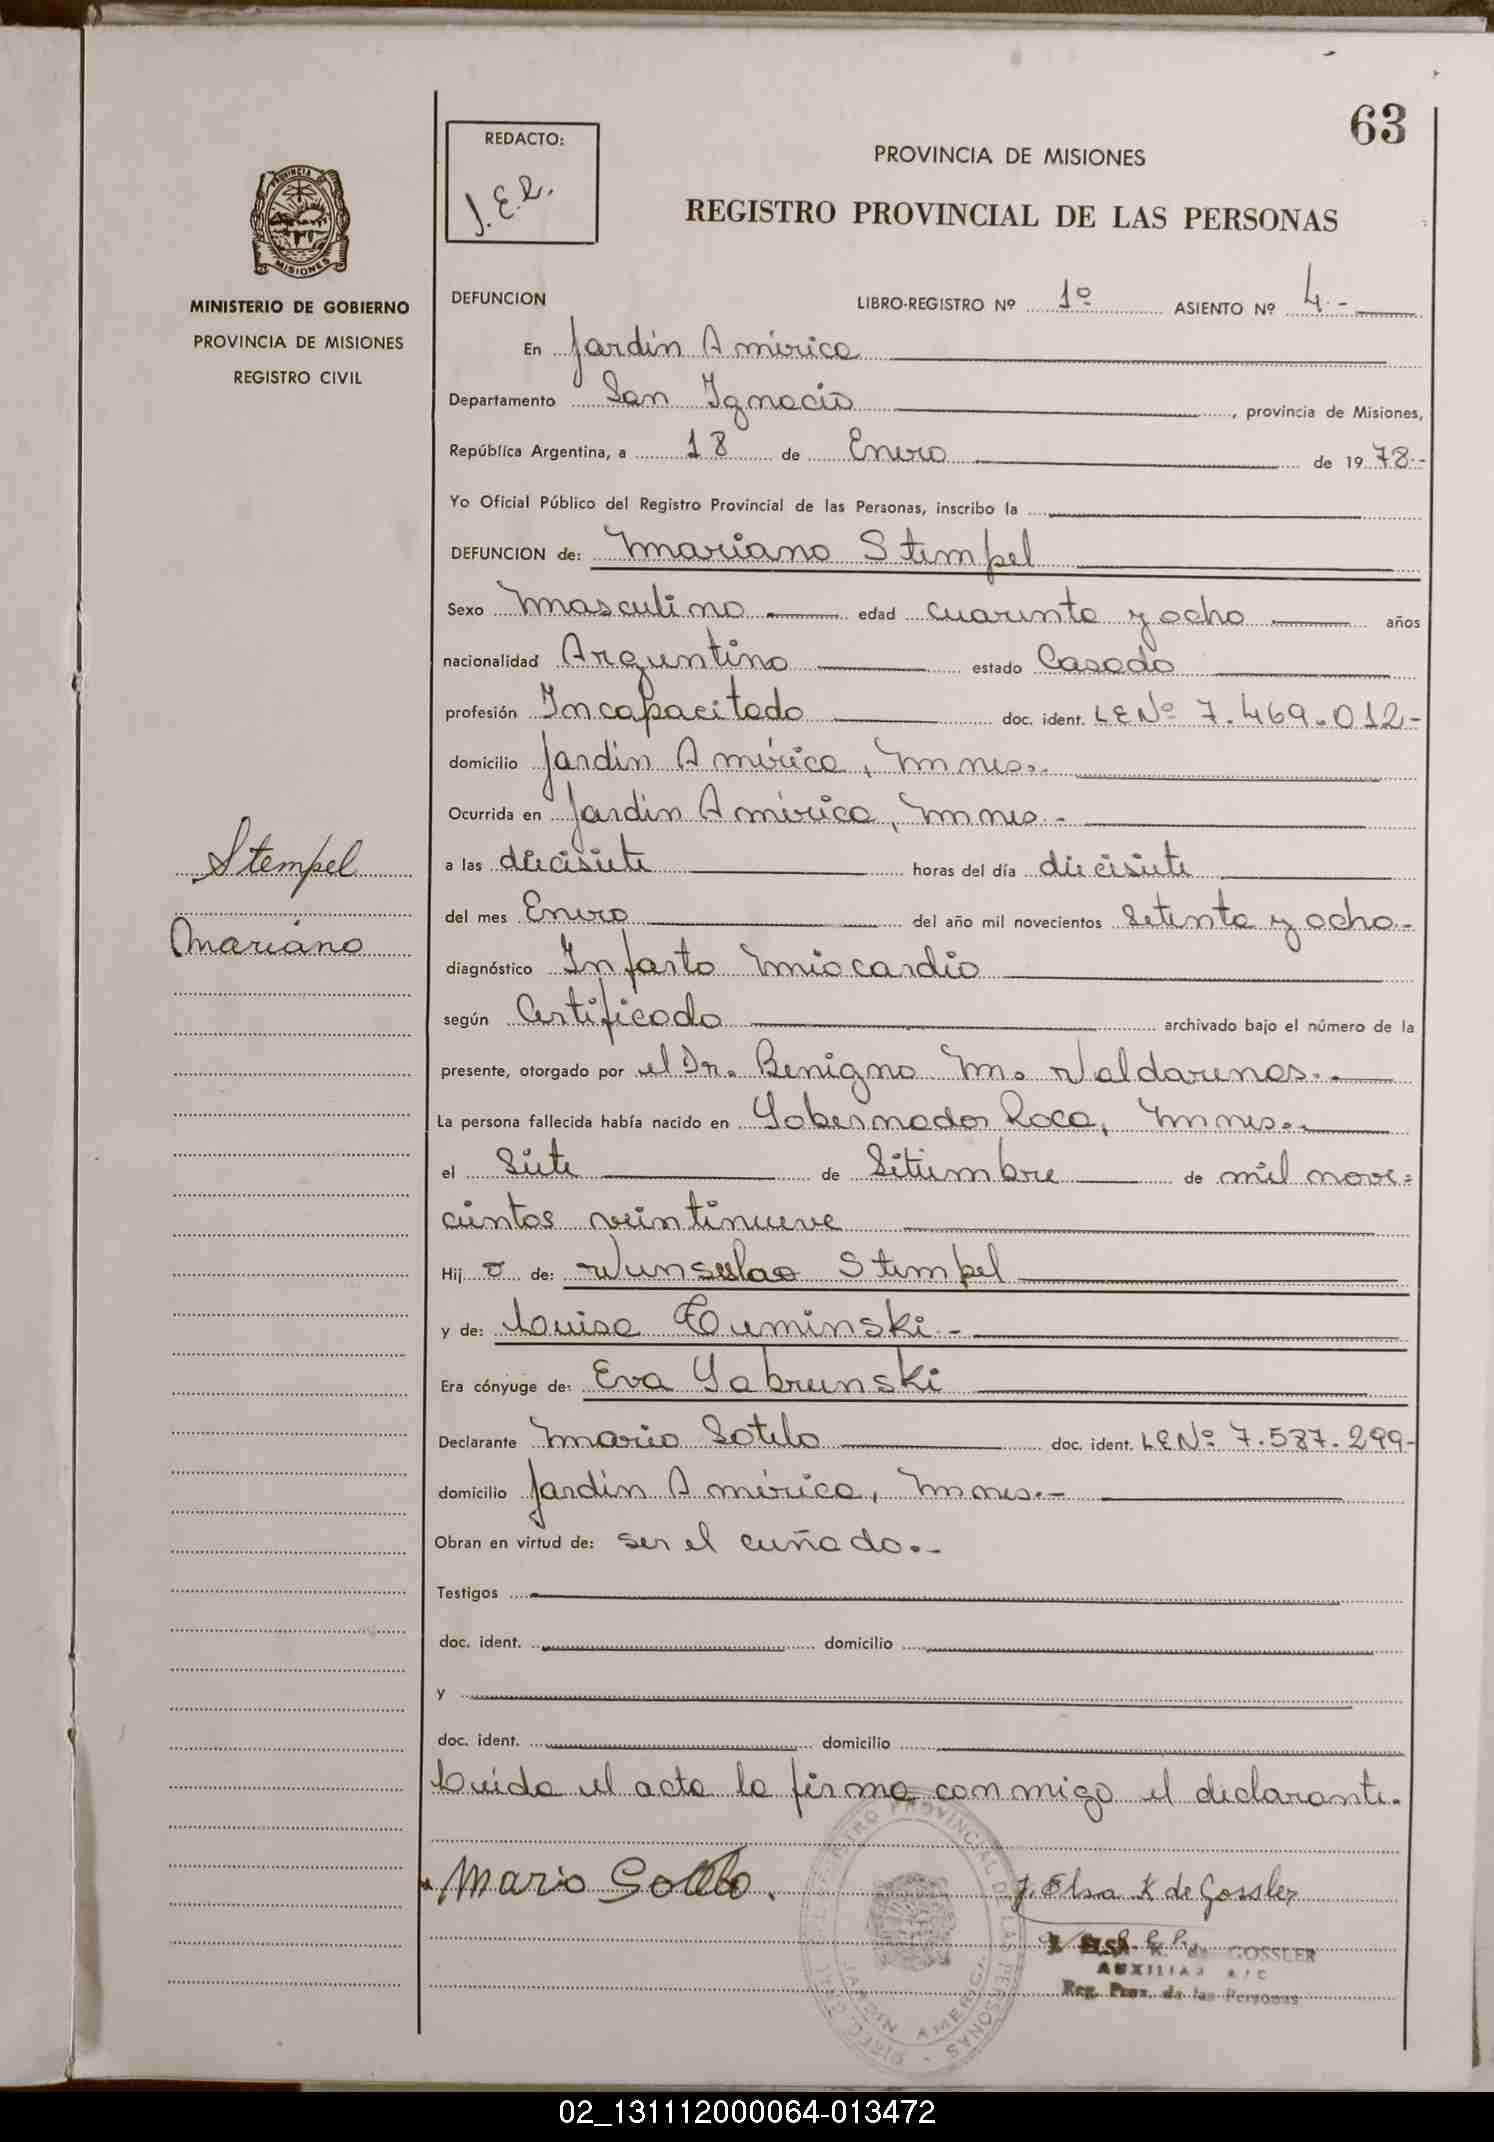 63
REDACTO:
J.E.R.
PROVINCIA DE MISIONES
REGISTRO PROVINCIAL DE LAS PERSONAS
PROVINCIA
MISIONES
MINISTERIO DE GOBIERNO
PROVINCIA DE MISIONES
REGISTRO CIVIL
DEFUNCION LIBRO-REGISTRO Nº 1º ASIENTO Nº 4.-
En Jardín América
Departamento San Ignacio, provincia de Misiones,
República Argentina, a 18 de Enero de 1978.-
Yo Oficial Público del Registro Provincial de las Personas, inscribo la
DEFUNCION de: Mariano Stempel
Sexo Masculino edad cuarenta y ocho años
nacionalidad Argentino estado Casado
profesión Incapacitado doc. ident. LE Nº 7.469.012-
domicilio Jardín América, Mnes.-
Ocurrida en Jardín América, Mnes.-
Stempel
Mariano
a las diecisiete horas del día diecisiete
del mes Enero del año mil novecientos setenta y ocho.-
diagnóstico Infarto Miocardio
según Certificado archivado bajo el número de la
presente, otorgado por el Dr. Benigno M. Valdarenas.-
La persona fallecida había nacido en Gobernador Roca, Mnes.-
el Siete de Setiembre de mil nove=
cientos veintinueve
Hijo de: Wenseslao Stempel
y de: Luisa Cuminski.-
Era cónyuge de: Eva Gabrenski
Declarante Mario Sotelo doc. ident. LE Nº 7.587.299-
domicilio Jardín América, Mnes.-
Obran en virtud de: ser el cuñado.-
Testigos
doc. ident. domicilio
y
doc. ident. domicilio
Leída el acta la firma conmigo el declarante.
Mario Sotelo.
J. Elsa K de Gossler
J. ELSA K. de GOSSLER
AUXILIAR A/C
Reg. Prov. de las Personas
REGISTRO PROVINCIAL DE LAS PERSONAS
JARDIN AMERICA
02_131112000064-013472